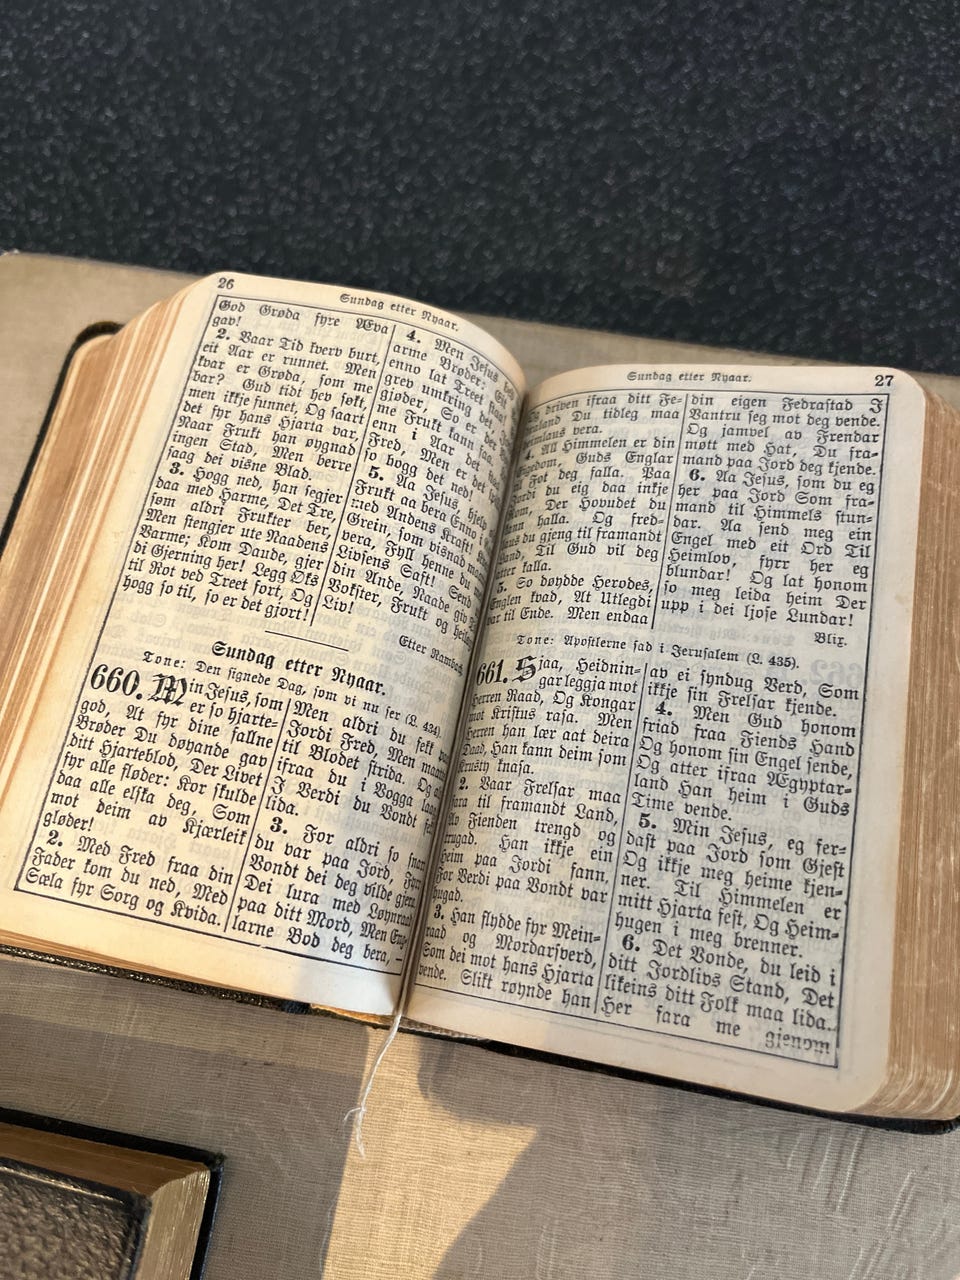 26
Sundag etter Nyaar.
God Grøda fyre Æva
gav!
2. Vaar Tid kverv burt,
eit Aar er runnet. Men
kvar er Grøda, som me
bar? Gud tidt hev søkt,
men ikkje funnet, Og saart
det fyr hans Hjarta var,
Naar Frukt han øygnad
ingen Stad, Men berre
saag dei visne Blad.
3. Hogg ned, han segjer
daa med Harme, Det Tre,
som aldri Frukter ber,
Men stengjer ute Naadens
Varme; Kom Daude, gjer
di Gjerning her! Legg Øks
til Rot ved Treet fort, Og
hogg so til, so er det gjort!
4. Men Jesus bed
arme Brøder: Eit
enno lat Treet staa!
grev umkring det,
gjøder, So er der
me Frukt kann faa.
enn i Aar det
Fred, Men er det
so hogg det ned!
5. Aa Jesus, hjelp
Frukt aa bera Enno i
med Andens Kraft!
Grein, som visnad
vera, Fyll henne du
Livsens Saft! Send
din Ande, Naade giv
Vokster, Frukt og heilag
Liv!
Etter Rambach
Sundag etter Nyaar.
Tone: Den signede Dag, som vi nu ser (L. 434).
660. Min Jesus, som
er so hjarte-
god, At fyr dine fallne
Brøder Du døyande gav
ditt Hjarteblod, Der Livet
fyr alle fløder: Kor skulde
daa alle elska deg, Som
mot deim av Kjærleik
gløder!
2. Med Fred fraa din
Fader kom du ned, Med
Sæla fyr Sorg og Kvida.
Men aldri du fekk paa
Jordi Fred, Men maatte
til Blodet strida. Og alt
ifraa du i Vogga laag
I Verdi du Vondt fekk
lida.
3. For aldri so snart
du var paa Jord, Fyrr
Vondt dei deg vilde gjera.
Dei lura med Løynraad
paa ditt Mord, Men Eng-
larne Bod deg bera, –
Sundag etter Nyaar.
27
Og driven ifraa ditt Fe-
draland Du tidleg maa
heimlaus vera.
4. All Himmelen er din
Eigedom, Guds Englar
til Fot deg falla. Paa
Jordi du eig daa inkje
Rom, Der Hovudet du
kann halla. Og fred-
laus du gjeng til framandt
Land, Til Gud vil deg
atter kalla.
5. So døydde Herodes,
Englen kvad, At Utlegdi
var til Ende. Men endaa
din eigen Fedrastad I
Vantru seg mot deg vende.
Og jamvel av Frendar
møtt med Hat, Du fra-
mand paa Jord deg kjende.
6. Aa Jesus, som du eg
her paa Jord Som fra-
mand til Himmels stun-
dar. Aa send meg ein
Engel med eit Ord Til
Heimlov, fyrr her eg
blundar! Og lat honom
so meg leida heim Der
upp i dei ljose Lundar!
Blix.
Tone: Apostlerne sad i Jerusalem (L. 435).
661. Sjaa, Heidnin-
gar leggja mot
Herren Raad, Og Kongar
mot Kristus rasa. Men
Herren han lær aat deira
Daad, Han kann deim som
Krusty knasa.
2. Vaar Frelsar maa
fara til framandt Land,
Av Fienden trengd og
trugad. Han ikkje ein
Heim paa Jordi fann,
For Verdi paa Vondt var
hugad.
3. Han flydde fyr Mein-
raad og Mordarsverd,
Som dei mot hans Hjarta
vende. Slikt røynde han
av ei syndug Verd, Som
ikkje sin Frelsar kjende.
4. Men Gud honom
friad fraa Fiends Hand
Og honom sin Engel sende,
Og atter ifraa Ægyptar-
land Han heim i Guds
Time vende.
5. Min Jesus, eg fer-
dast paa Jord som Gjest
Og ikkje meg heime kjen-
ner. Til Himmelen er
mitt Hjarta fest, Og Heim-
hugen i meg brenner.
6. Det Vonde, du leid i
ditt Jordlivs Stand, Det
likeins ditt Folk maa lida.
Her fara me gjenom